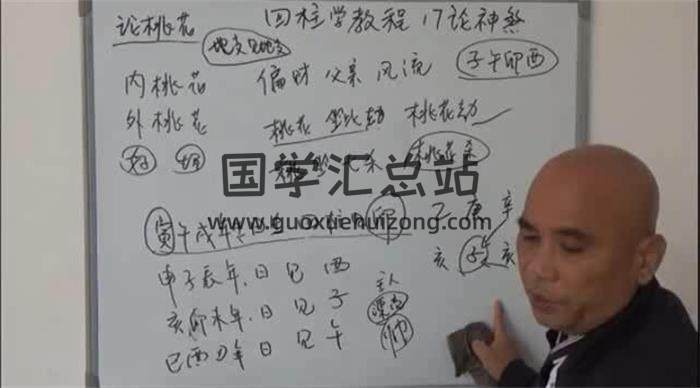 论桃花 四柱学教程 17论神煞
地支见地支
内桃花 偏财 父亲 风流 子午卯酉
外桃花 桃花 劫 桃花劫
国学汇总站
www.guoxuehuizong.com
寅午戌年 日 见 卯
申子辰年、日 见 酉
亥卯未年、日 见 子
巳酉丑年 日 见 午
子 庚 辛
亥 子 亥
主人
漂亮
帅